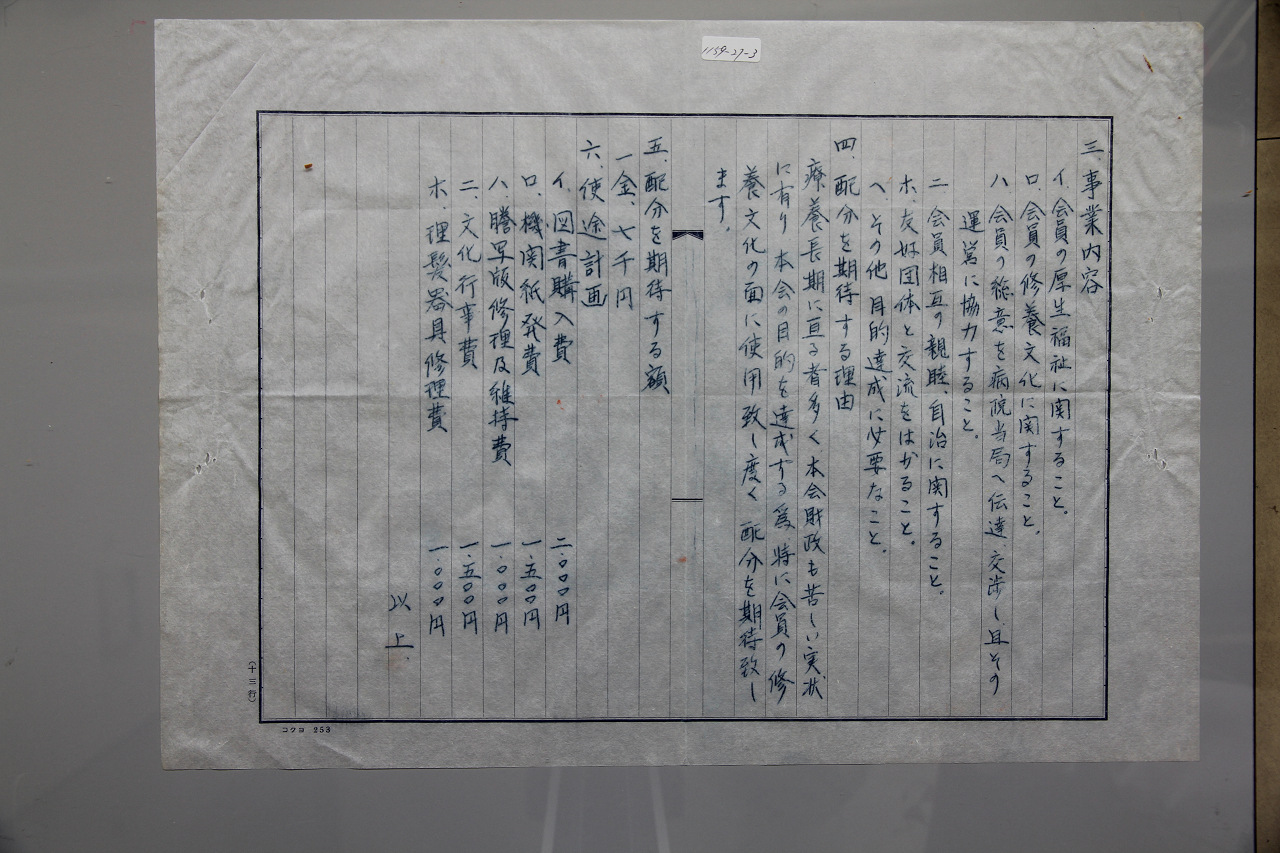 1159-27-3
三、事業内容
イ、会員の厚生福祉に関すること。
ロ、会員の修養文化に関すること。
ハ、会員の総意を病院当局へ伝達、交渉し且その
運営に協力すること。
ニ、会員相互の親睦、自治に関すること。
ホ、友好団体と交流をはかること。
ヘ、その他目的達成に必要なこと。
四、配分を期待する理由
療養長期に亘る者多く本会財政も苦しい実状
に有り本会の目的を達成する為、特に会員の修
養文化の面に使用致し度く配分を期待致し
ます。
五、配分を期待する額
一金、七千円
六、使途計画
イ、図書購入費 二、〇〇〇円
ロ、機関紙発費 一、五〇〇円
ハ、謄写版修理及維持費 一、〇〇〇円
ニ、文化行事費 一、五〇〇円
ホ、理髪器具修理費 一、〇〇〇円
以上、
(十三行)
コクヨ 253